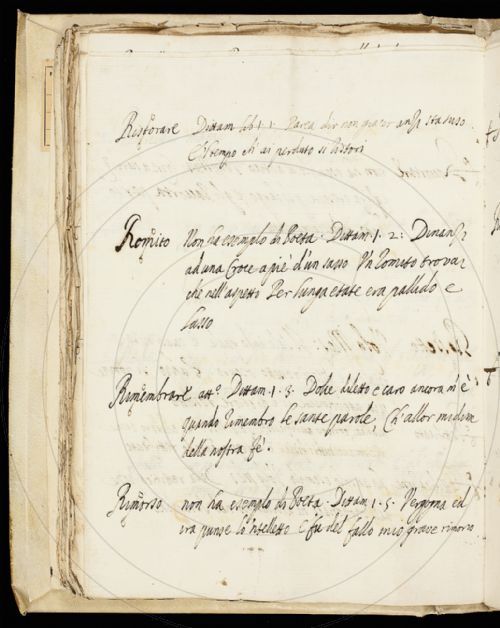 Ristorare Dittam lib 1 1 Parea dir non giacer ansi sta suso
E'l tempo ch' ai perduto si ristori
Romito Non ha esempio di Poeta. Dittam. 1. 2: Dinansi
ad una Croce a piè d'un sasso Un Romito trovai
che nell'aspetto Per lunga etate era pallido e
lasso
Rimembrare att.º Dittam. 1. 3. Dolce diletto e caro ancora m'è
quando rimembro le sante parole, Ch' allor mi
della nostra fè.
Rimorso non ha esempio di Poeta. Dittam. 1. 5. Vergogna ed
ira punse lo 'ntelletto E fu del fallo mio grave rimorso